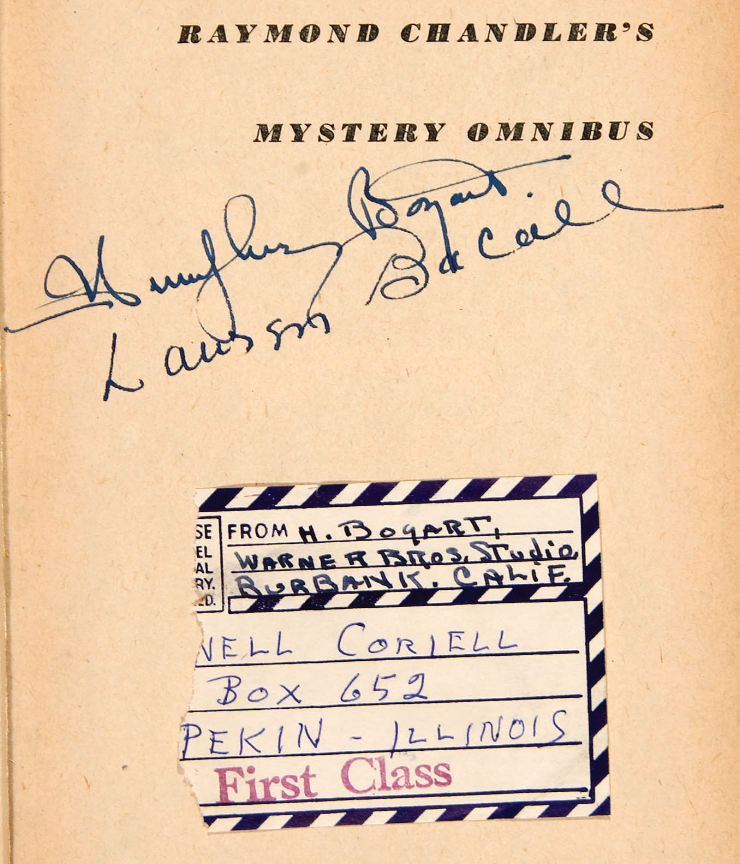 RAYMOND CHANDLER'S
MYSTERY OMNIBUS
Humphrey Bogart
Lauren Bacall
SE
EL
AL
RY.
ED.
FROM H. BOGART,
WARNER BROS. STUDIO
BURBANK. CALIF.
NELL CORIELL
BOX 652
PEKIN - ILLINOIS
First Class